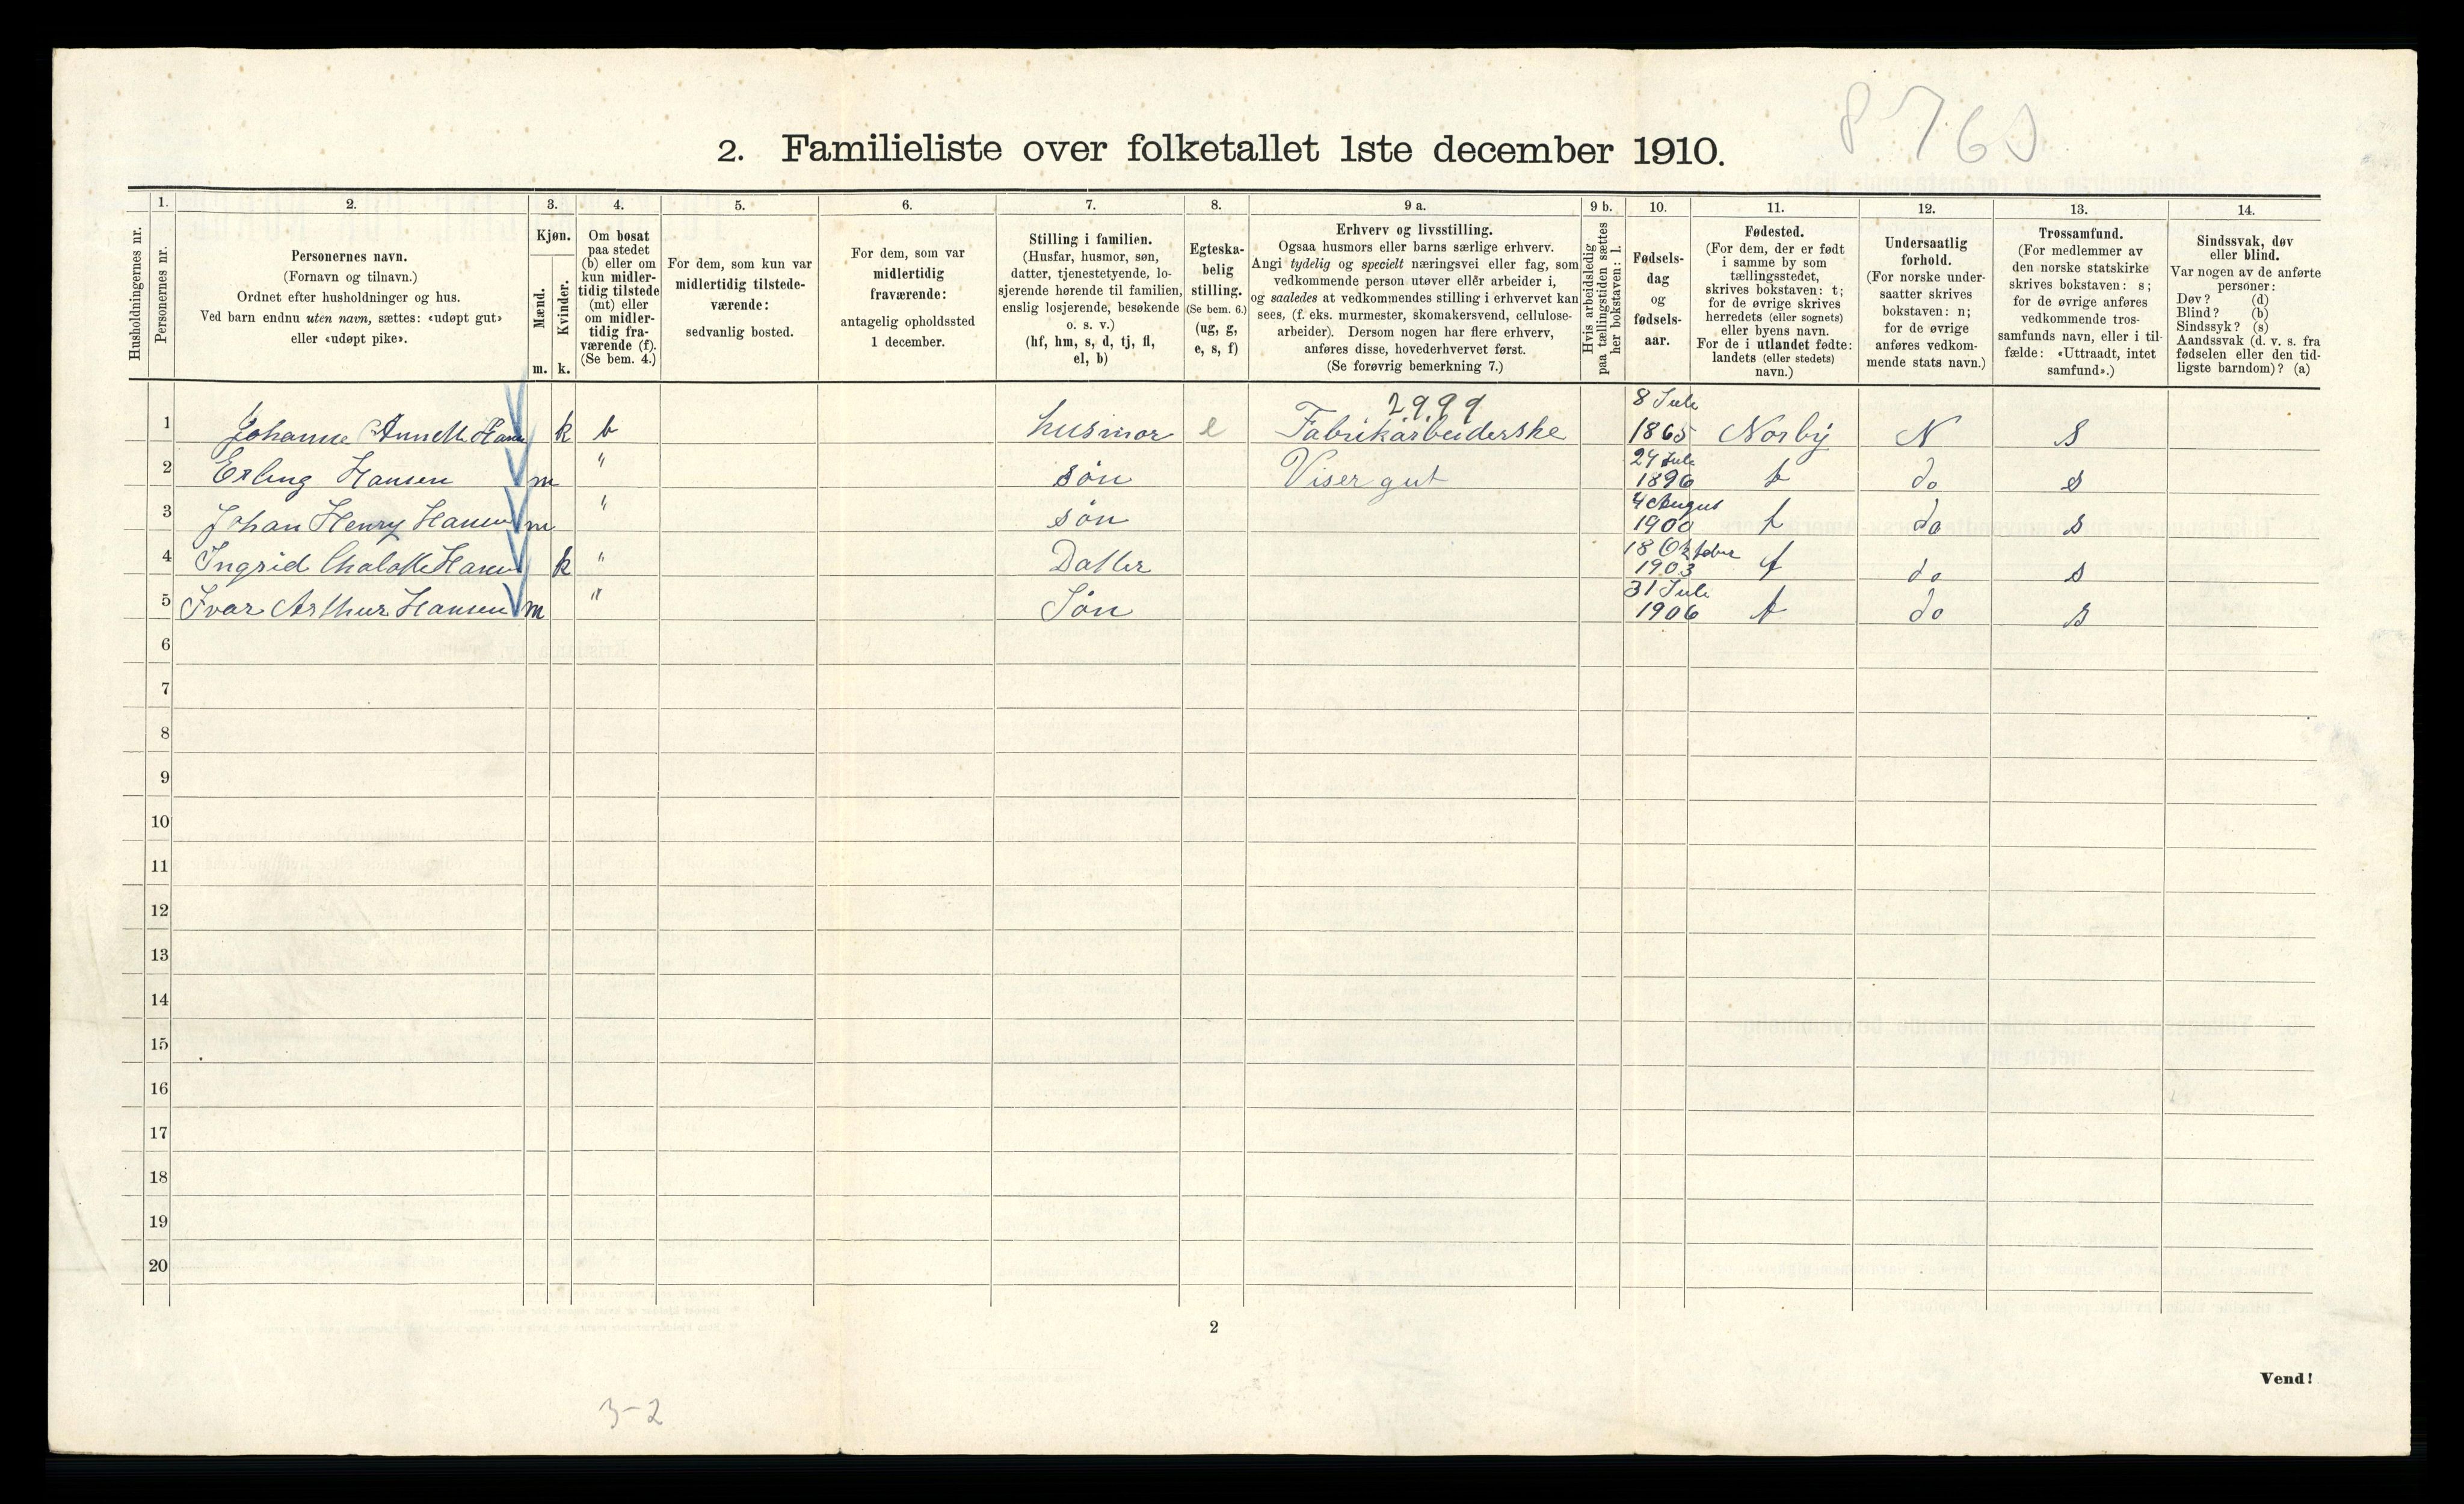 8763
2. Familieliste over folketallet 1ste december 1910.
Husholdningernes nr.
1.
Personernes nr.
2.
Personernes navn.
(Fornavn og tilnavn.)
Ordnet efter husholdninger og hus.
Ved barn endnu uten navn, sættes: «udøpt gut»
eller «udøpt pike».
3.
Kjøn.
Mænd.
Kvinder.
m. k.
4.
Om bosat
paa stedet
(b) eller om
kun midler-
tidig tilstede
(mt) eller
om midler-
tidig fra-
værende (f).
(Se bem. 4.)
5.
For dem, som kun var
midlertidig tilstede-
værende:
sedvanlig bosted.
6.
For dem, som var
midlertidig
fraværende:
antagelig opholdssted
1 december.
7.
Stilling i familien.
(Husfar, husmor, søn,
datter, tjenestetyende, lo-
sjerende hørende til familien,
enslig losjerende, besøkende
o. s. v.)
(hf, hm, s, d, tj, fl,
el, b)
8.
Egteska-
belig
stilling.
(Se bem. 6.)
(ug, g,
e, s, f)
9 a.
Erhverv og livsstilling.
Ogsaa husmors eller barns særlige erhverv.
Angi tydelig og specielt næringsvei eller fag, som
vedkommende person utøver eller arbeider i,
og saaledes at vedkommendes stilling i erhvervet kan
sees, (f. eks. murmester, skomakersvend, cellulose-
arbeider). Dersom nogen har flere erhverv,
anføres disse, hovederhvervet først.
(Se forøvrig bemerkning 7.)
9 b.
Hvis arbeidsledig
paa tællingstiden sættes
her bokstaven: l.
10.
Fødsels-
dag
og
fødsels-
aar.
11.
Fødested.
(For dem, der er født
i samme by som
tællingsstedet,
skrives bokstaven: t;
for de øvrige skrives
herredets (eller sognets)
eller byens navn.
For de i utlandet fødte:
landets (eller stedets)
navn.)
12.
Undersaatlig
forhold.
(For norske under-
saatter skrives
bokstaven: n;
for de øvrige
anføres vedkom-
mende stats navn.)
13.
Trossamfund.
(For medlemmer av
den norske statskirke
skrives bokstaven: s;
for de øvrige anføres
vedkommende tros-
samfunds navn, eller i til-
fælde: «Uttraadt, intet
samfund».)
14.
Sindssvak, døv
eller blind.
Var nogen av de anførte
personer:
Døv? (d)
Blind? (b)
Sindssyk? (s)
Aandssvak (d. v. s. fra
fødselen eller den tid-
ligste barndom)? (a)
2999 8 Juli
1 Johanne k b husmor e Fabrikarbeiderske 1865 Norby N S
24 Juli
2 Erling Hansen m " søn Visergut 1896 t do s
4 August
3 Johan Henry Hansen m " søn 1900 t do s
18 Oktober
4 Ingrid k " Datter 1903 t do s
31 Juli
5 Ivar Arthur Hansen m " Søn 1906 t do s
6
7
8
9
10
11
12
13
14
15
16
17
18
19
20
2
Vend!
3-2